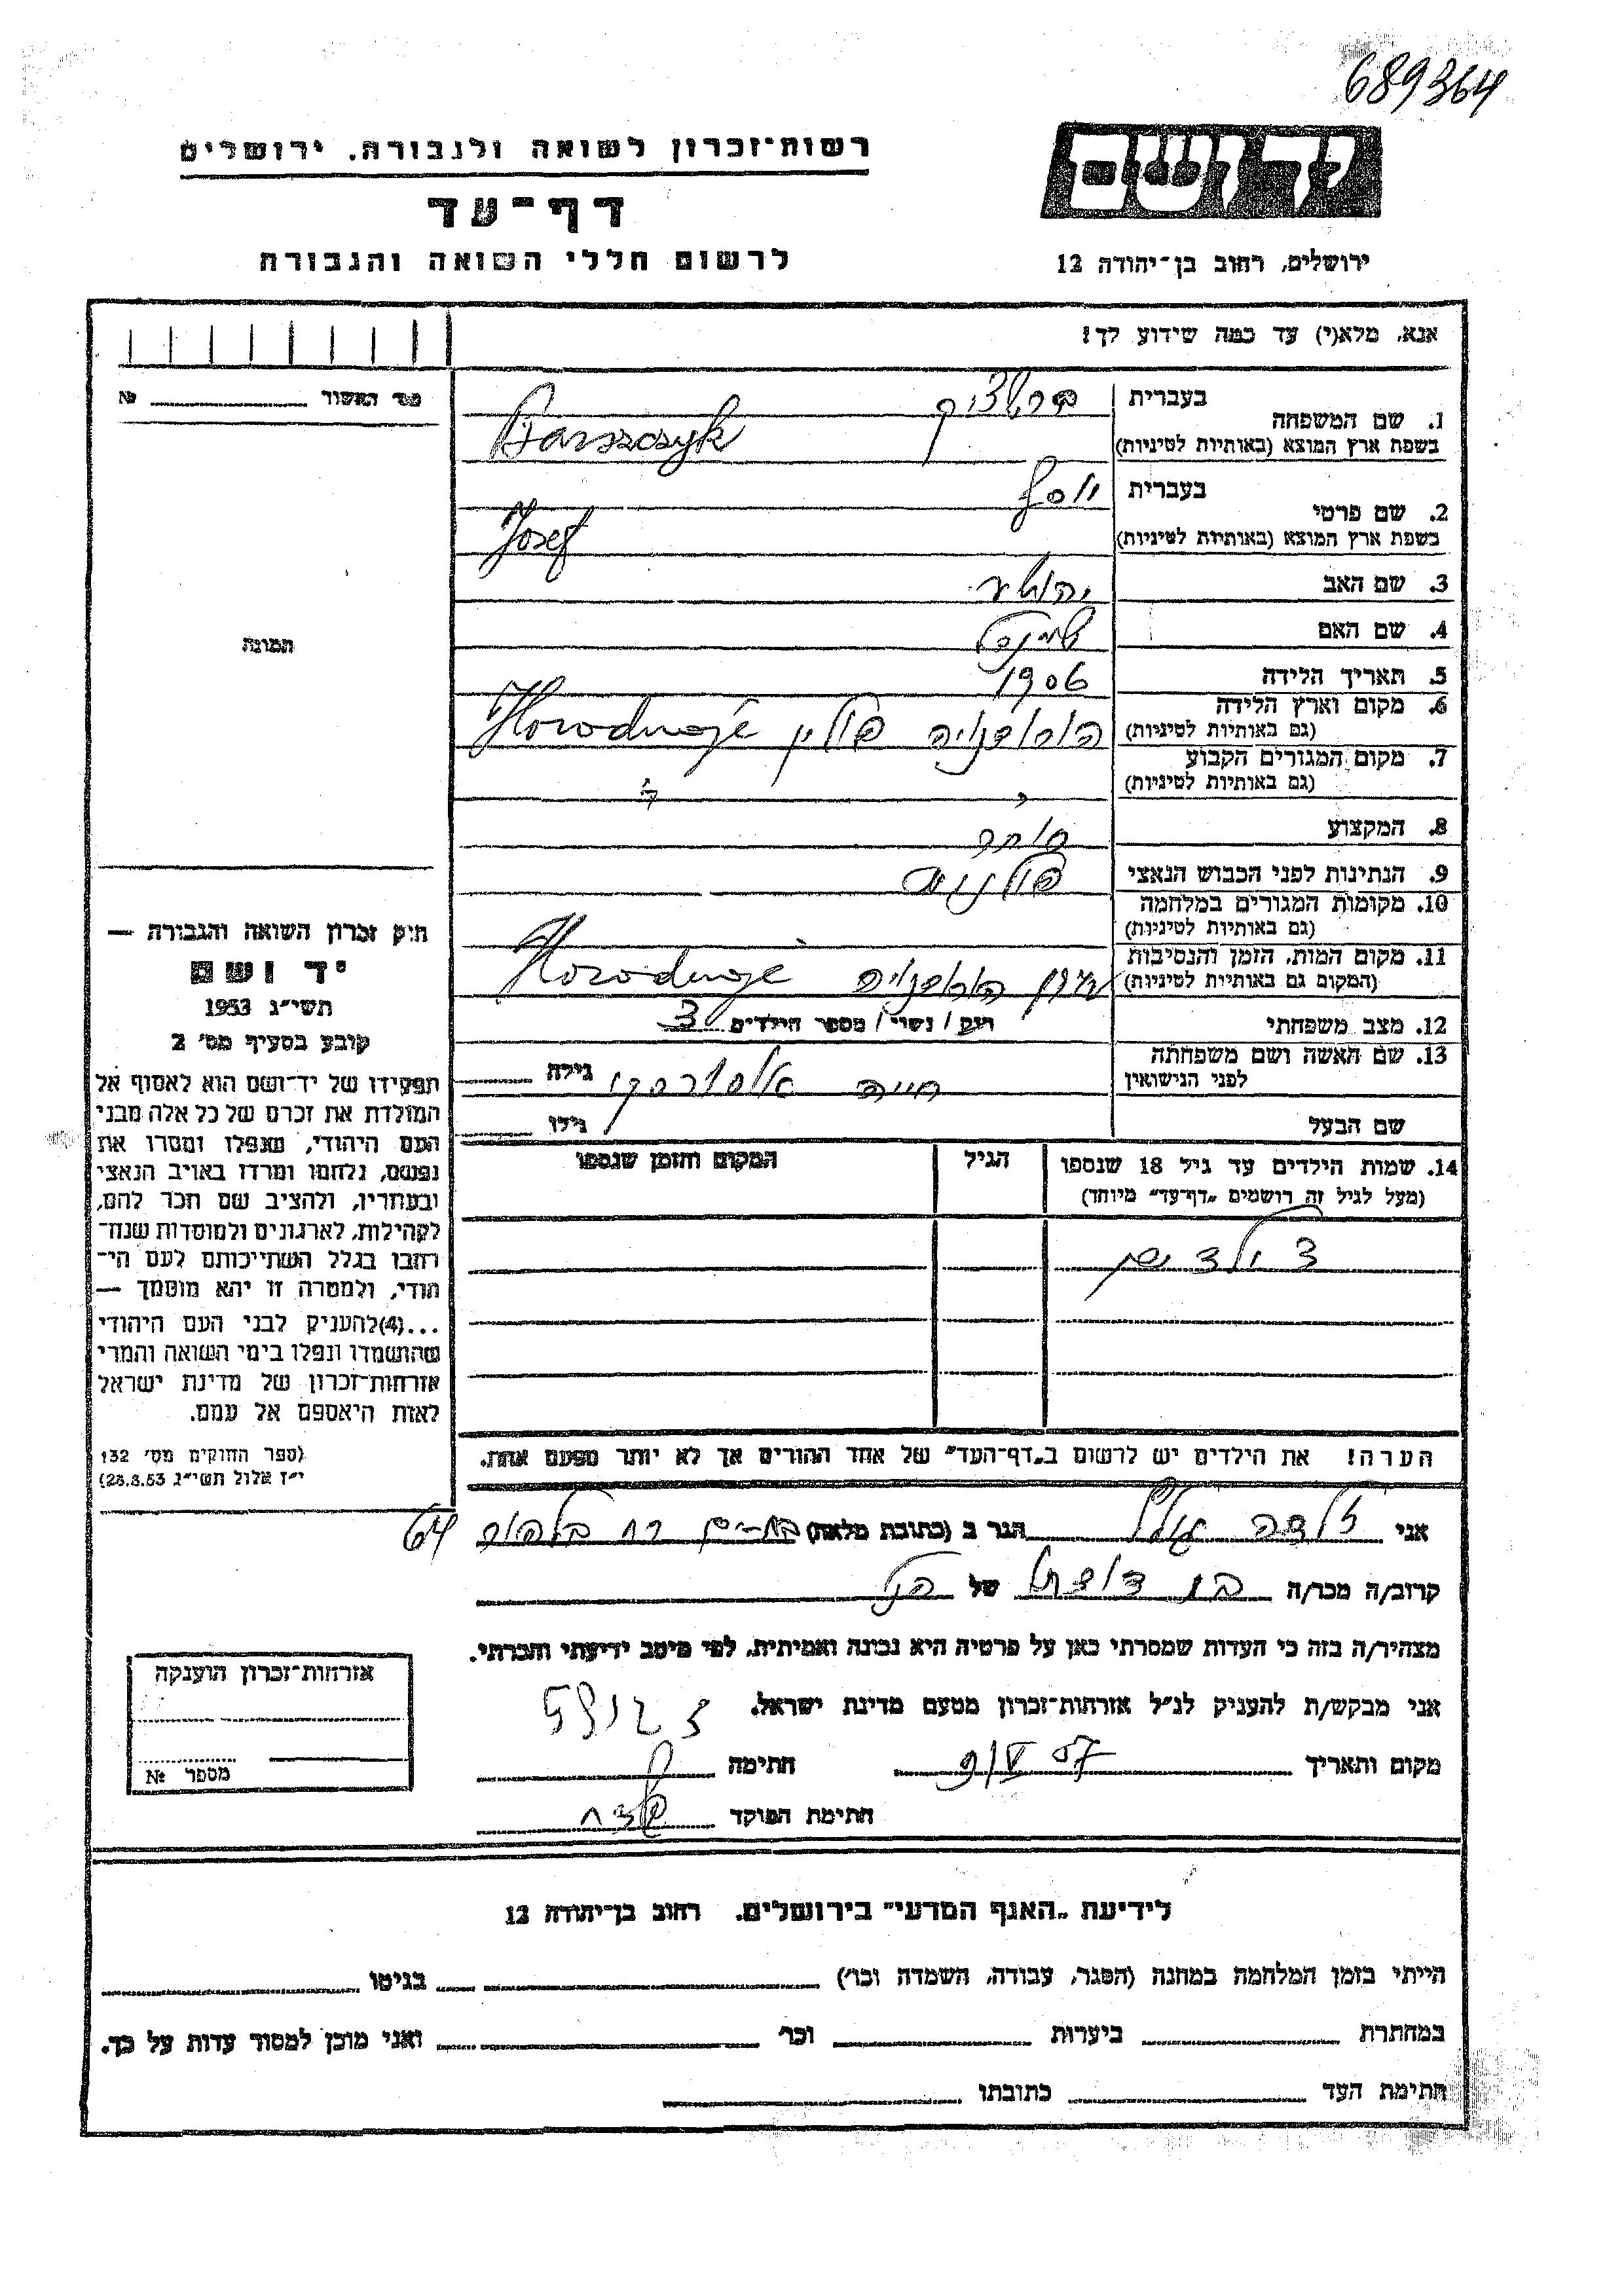 689364
רשות־זכרון לשואה ולגבורה. ירושלים
דף־עד
לרשום חללי השואה והגבורה
יד ושם
ירושלים, רחוב בן־יהודה 12
אנא, מלא(י) עד כמה שידוע לך!
מס' האשור № 
1. שם המשפחה
בעברית
בשפת ארץ המוצא (באותיות לטיניות)
Barszczyk
2. שם פרטי
בעברית יוסף
בשפת ארץ המוצא (באותיות לטיניות) Josef
3. שם האב יהושע
4. שם האם
5. תאריך הלידה 1906
6. מקום וארץ הלידה
(גם באותיות לטיניות) פולין Horodnoje
7. מקום המגורים הקבוע
(גם באותיות לטיניות)
8. המקצוע סוחר
9. הנתינות לפני הכבוש הנאצי פולנית
10. מקומות המגורים במלחמה
(גם באותיות לטיניות)
11. מקום המות, הזמן והנסיבות
(המקום גם באותיות לטיניות) Horodnoje
12. מצב משפחתי רוק / נשוי / מספר הילדים 3
13. שם האשה ושם משפחתה
לפני הנישואין חיה גילה
שם הבעל גילו
14. שמות הילדים עד גיל 18 שנספו
(מעל לגיל זה רושמים „דף־עד” מיוחד)
הגיל
המקום והזמן שנספו
3 ילדים
הערה! את הילדים יש לרשום ב„דף־העד” של אחד ההורים אך לא יותר מפעם אחת.
תמונה
חוק זכרון השואה והגבורה —
יד ושם
תשי״ג 1953
קובע בסעיף מס׳ 2
תפקידו של יד־ושם הוא לאסוף אל
המולדת את זכרם של כל אלה מבני
העם היהודי, שנפלו ומסרו את
נפשם, נלחמו ומרדו באויב הנאצי
ובעוזריו, ולהציב שם וזכר להם,
לקהילות, לארגונים ולמוסדות שנח־
רחבו בגלל השתייכותם לעם הי־
הודי, ולמטרה זו יהא מוסמך —
...(4)להעניק לבני העם היהודי
שהושמדו ונפלו בימי השואה והמרי
אזרחות־זכרון של מדינת ישראל
לאות היאספם אל עמם.
(ספר החוקים מס׳ 132
י״ז אלול תשי״ג 28.8.53)
אני הגר ב (כתובת מלאה) 64
קרוב/ה מכר/ה בן דוד של
מצהיר/ה בזה כי העדות שמסרתי כאן על פרטיה היא נכונה ואמיתית, לפי מיטב ידיעתי והכרתי.
אני מבקש/ת להעניק לנ״ל אזרחות־זכרון מטעם מדינת ישראל.
מקום ותאריך 9/V 57 חתימה
חתימת הפוקד
אזרחות־זכרון הוענקה
מספר №
לידיעת „האגף המדעי” בירושלים. רחוב בן־יהודה 12
הייתי בזמן המלחמה במחנה (הסגר, עבודה, השמדה וכו׳) בגיטו
במחתרת ביערות וכו׳ ואני מוכן למסור עדות על כך.
חתימת העד כתובתו